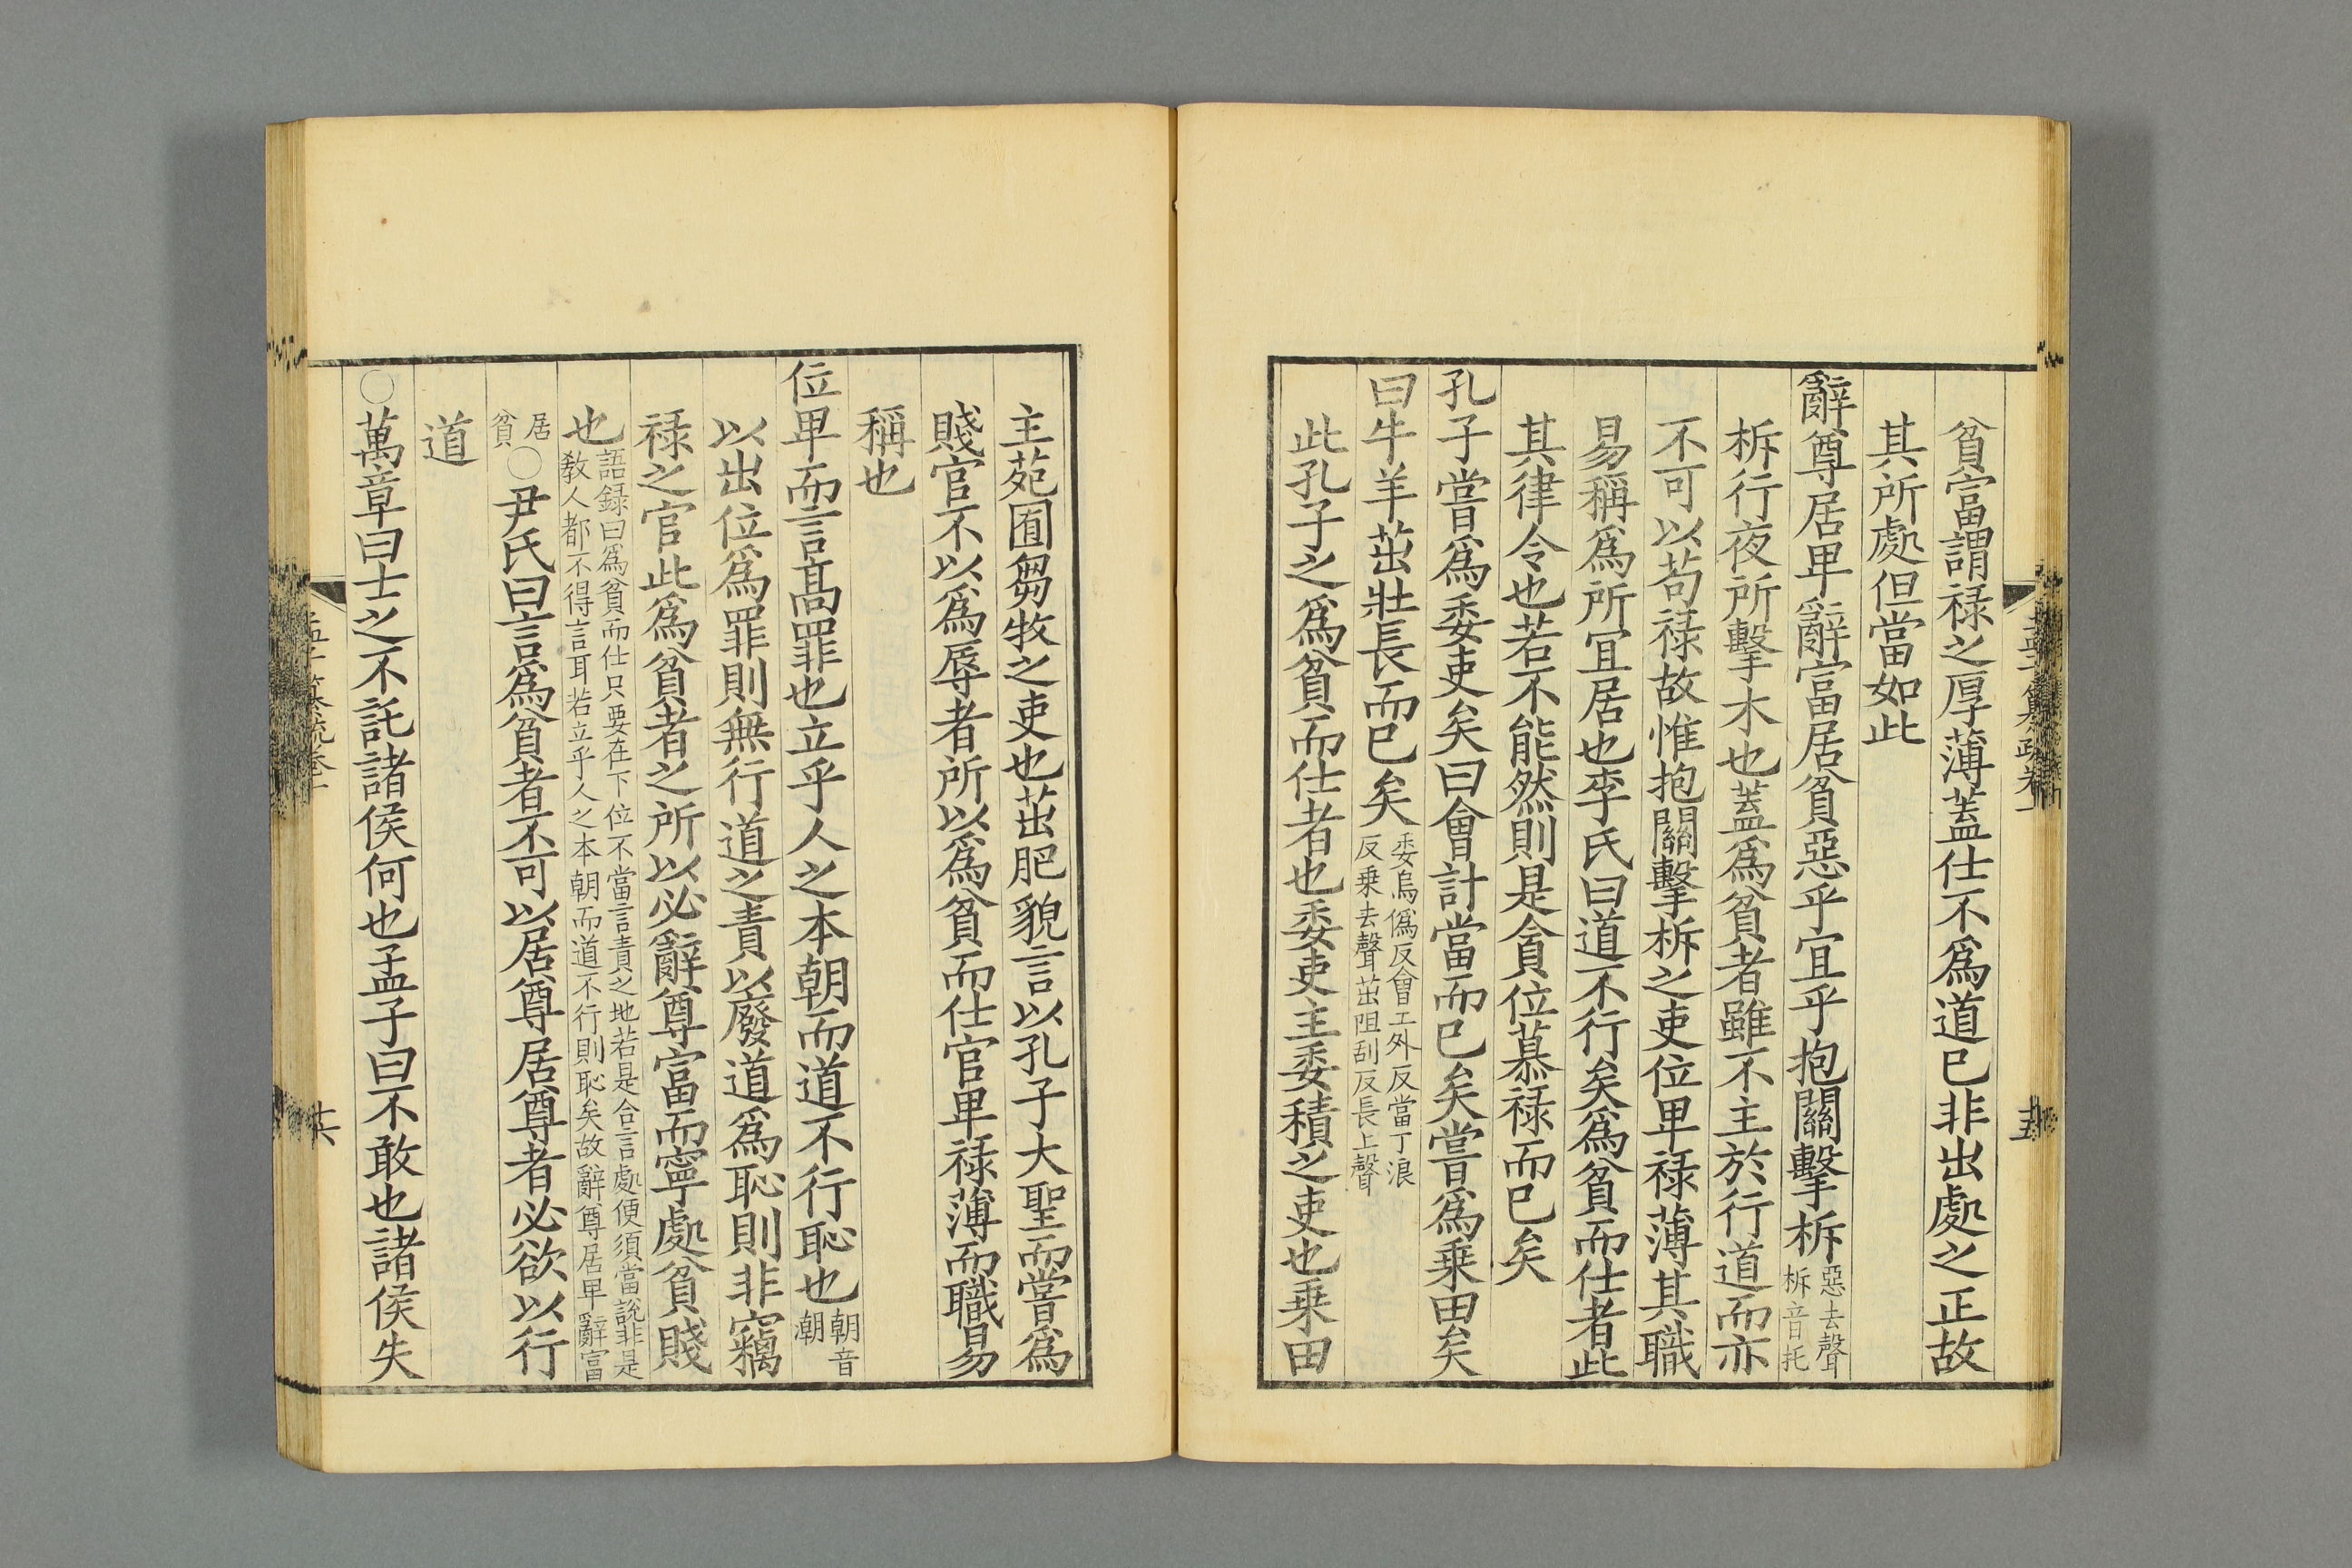 貧富謂禄之厚薄蓋仕不爲道已非出處之正故
其所處但當如此
辭尊居卑辭富居貧惡乎宜乎抱關擊柝惡去聲柝音托
柝行夜所擊木也蓋爲貧者雖不主於行道而亦
不可以苟禄故惟抱關擊柝之吏位卑禄薄其職
易稱爲所宜居也李氏曰道不行矣爲貧而仕者此
其律令也若不能然則是貪位慕禄而已矣
孔子嘗爲委吏矣曰會計當而已矣嘗爲乗田矣
曰牛羊茁壯長而已矣委烏僞反會工外反當丁浪反乗去聲茁阻刮反長上聲
此孔子之爲貧而仕者也委吏主委積之吏也乗田
主苑囿芻牧之吏也茁肥貌言以孔子大聖而嘗爲
賤官不以爲辱者所以爲貧而仕官卑禄薄而職易
稱也
位卑而言髙罪也立乎人之本朝而道不行恥也朝音潮
以出位爲罪則無行道之責以廢道爲恥則非竊
禄之官此爲貧者之所以必辭尊富而寧處貧賤
也語録曰爲貧而仕只要在下位不當言責之地若是合言處便須當說非是教人都不得言耳若立乎人之本朝而道不行則恥矣故辭尊居卑辭富
居貧〇尹氏曰言爲貧者不可以居尊居尊者必欲以行
道
〇萬章曰士之不託諸侯何也孟子曰不敢也諸侯失
十六